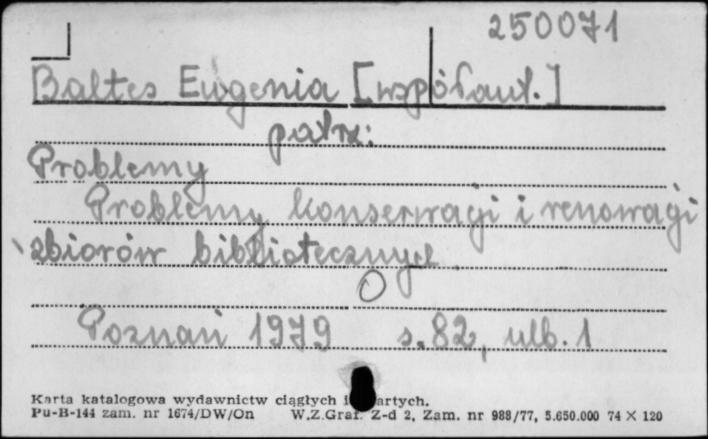 250071
Baltes Eugenia [współaut.]
patrz:
Problemy
Problemy konserwacji i renowacji
zbiorów bibliotecznych.
Poznań 1979 s. 82, nlb. 1
Karta katalogowa wydawnictw ciągłych i artych.
Pu-B-144 zam. nr 1674/DW/On W.Z.Graf. Z-d 2, Zam. nr 988/77, 5.650.000 74 X 120